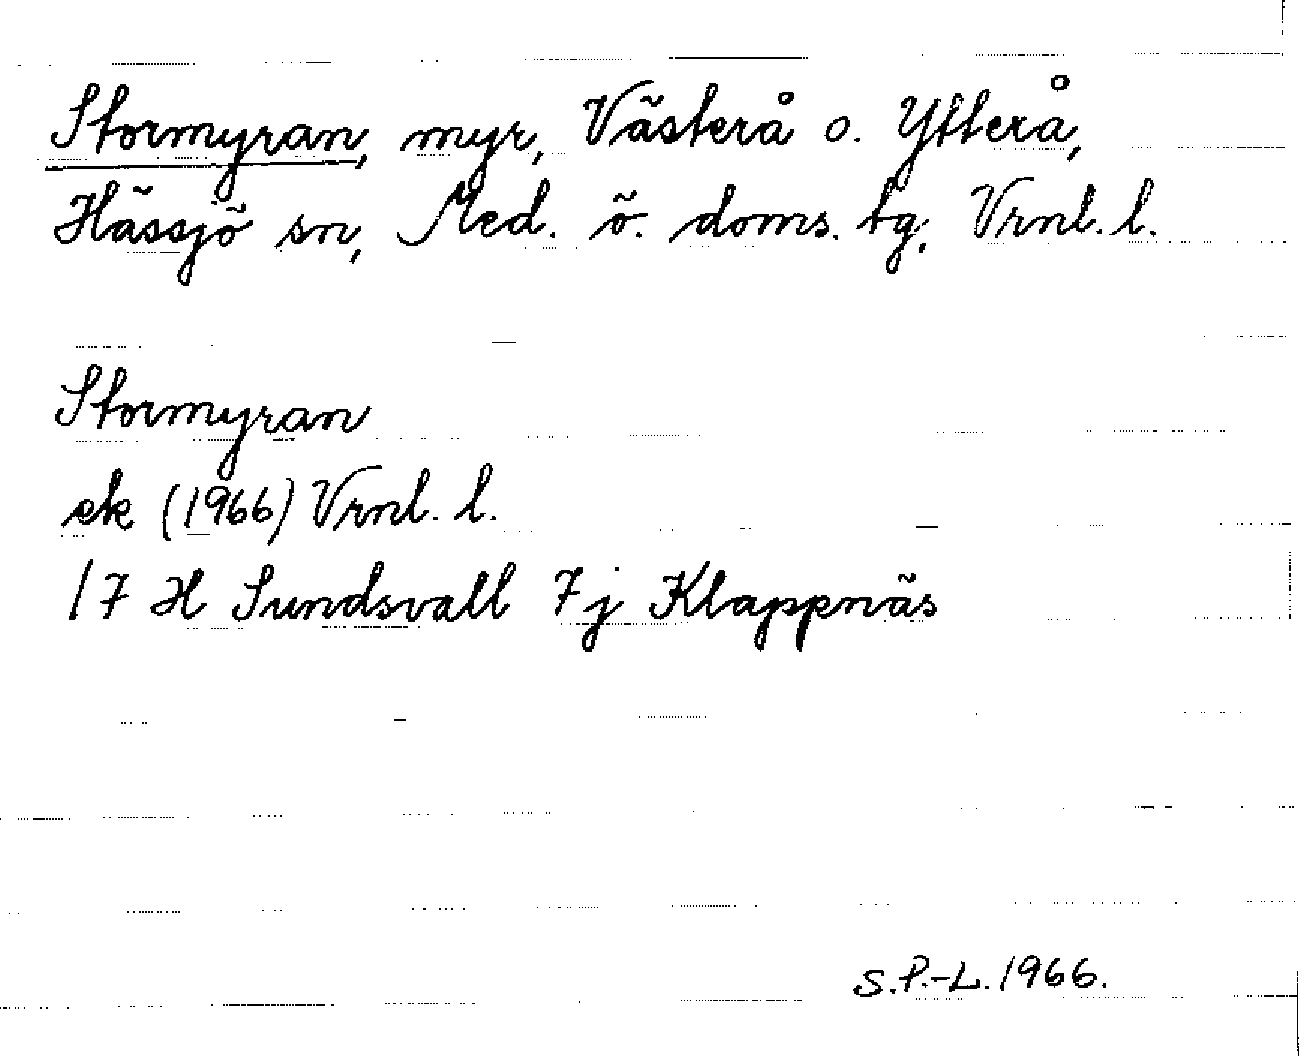 Stormyran, myr, Västerå o. Ytterå,
Hässjö sn, Med. ö. doms. tg. Vrnl. l.
Stormyran
ek (1966) Vrnl. l.
17 H Sundsvall 7j Klappnäs
S.P.-L. 1966.